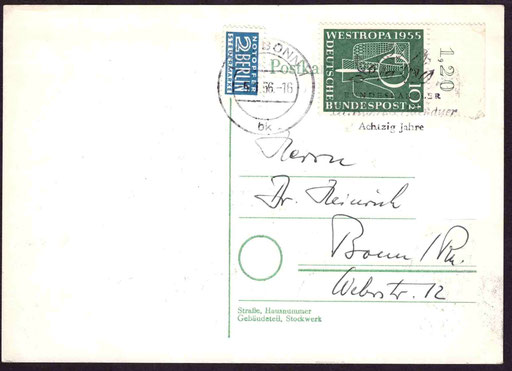 NOTOPFER
2 BERLIN
STEUERMARKE
BONN
56.-16
bk
Postka
WESTROPA 1955
DEUTSCHE
BUNDESPOST
10
1,20
Achtzig Jahre
Herrn
Dr. Heinrich
Bonn/Rh.
Weberstr. 12
Straße, Hausnummer
Gebäudeteil, Stockwerk